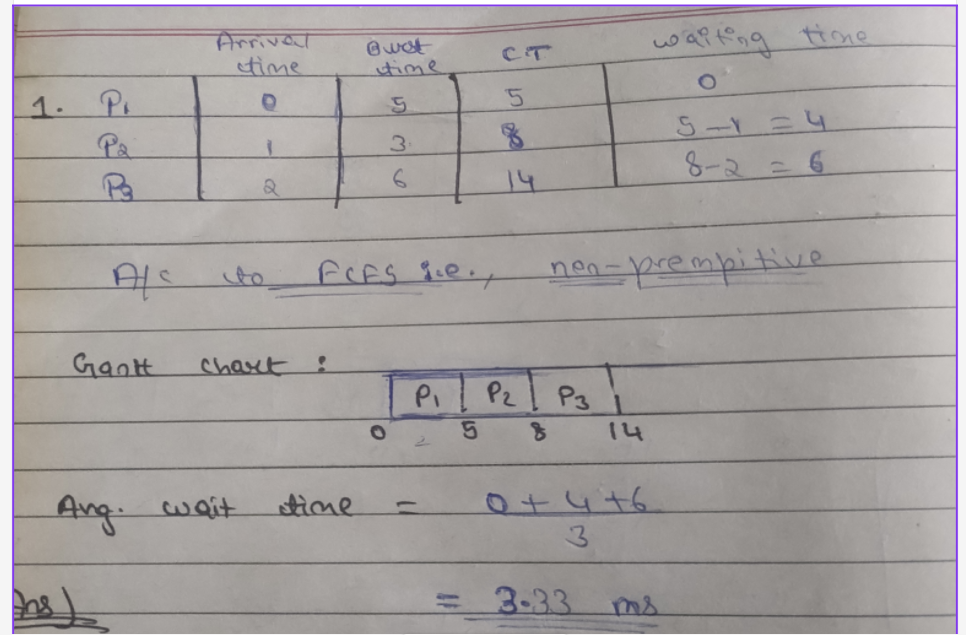 Arrival time Burst time CT waiting time
1. P1 0 5 5 0
P2 1 3 8 5-1 = 4
P3 2 6 14 8-2 = 6
A/c to FCFS i.e., non-prempitive
Gantt chart :
P1 P2 P3
0 5 8 14
Avg. wait time = 0+4+6
3
Ans) = 3.33 ms